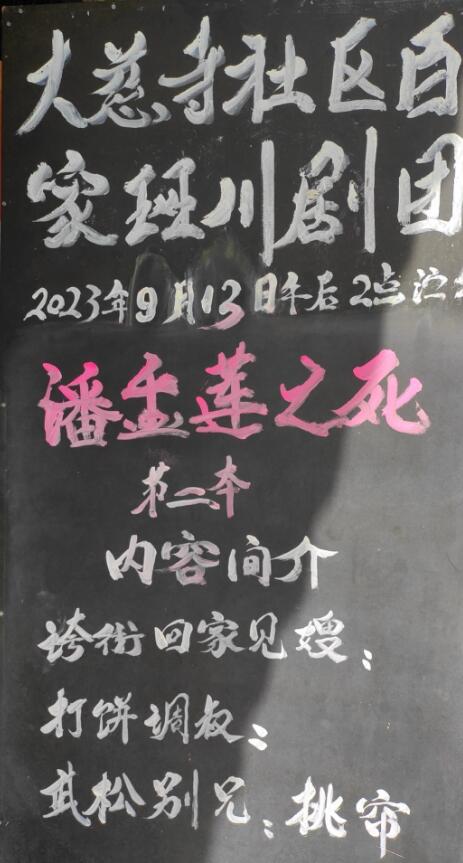 大慈寺社区百
家班川剧团
2023年9月13日午后2点演出
潘金莲之死
第二本
内容间介
誇街回家见嫂；
打饼调叔；
武松别兄；挑帘